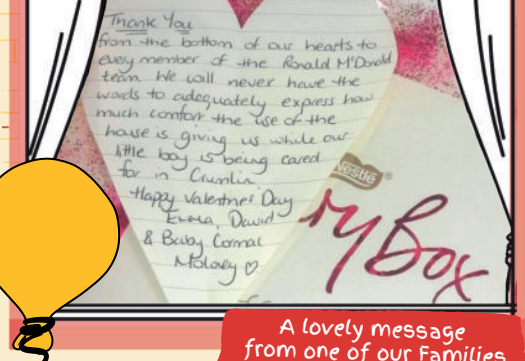 Thank You
from the bottom of our hearts to
every member of the Ronald McDonald
team. We will never have the
words to adequately express how
much comfort the use of the
house is giving us while our
little boy is being cared
for in Crumlin.
Happy Valentines Day
Emma, David
& Baby Cormac
Moloney ♡
Nestlé
Box
A lovely message
from one of our Families